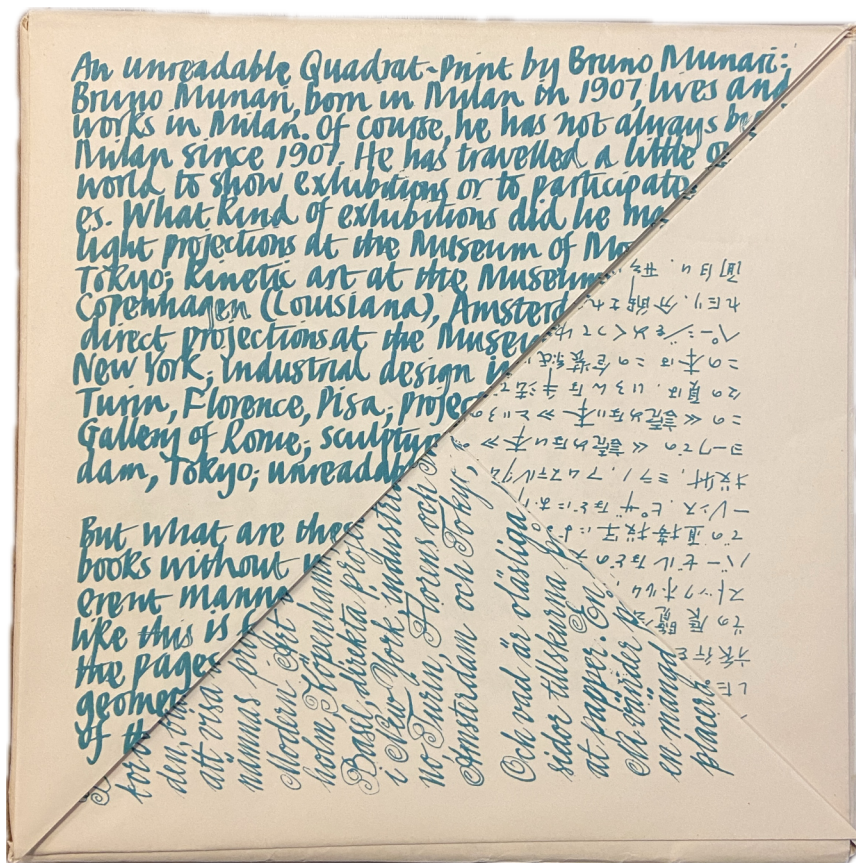 An unreadable Quadrat-Print by Bruno Munari:
Bruno Munari, born in Milan in 1907, lives and
works in Milan. Of course, he has not always be
Milan since 1907. He has travelled a little
world to show exhibitions or to participate
es. What kind of exhibitions did he ma
light projections at the Museum of Mo
Tokyo; kinetic art at the Museum
Copenhagen (Louisiana), Amsterd
direct projections at the Museu
New York; industrial design in
Turin, Florence, Pisa; projec
Gallery of Rome; sculptur
dam, Tokyo; unreadab
But what are thes
books without
erent manne
like this is
the pages
geomet
of th
den,
att visa
namus pr
Modern Art
holm, Köpenhamn
Basel, direkta proje
i New York industri
no Turin, Florens och
Amsterdam och Tokyo,
Och vad är oläsliga
sidor tillskurna p
at papper. En
Ni vänder p
en mängd
placera
した
旅行を
その展覧
ストックホルム,
バーゼルなどの
での直接投写によ
ーレンス, ピサなどにお
投射, ミラノ, アムステルダム
ヨークでの≪読めない本≫
この≪読めない本≫という
なの頁は, いろんな方法で
この本は この包装紙
ページをめくってゆ
れたり, 分節され
面白い